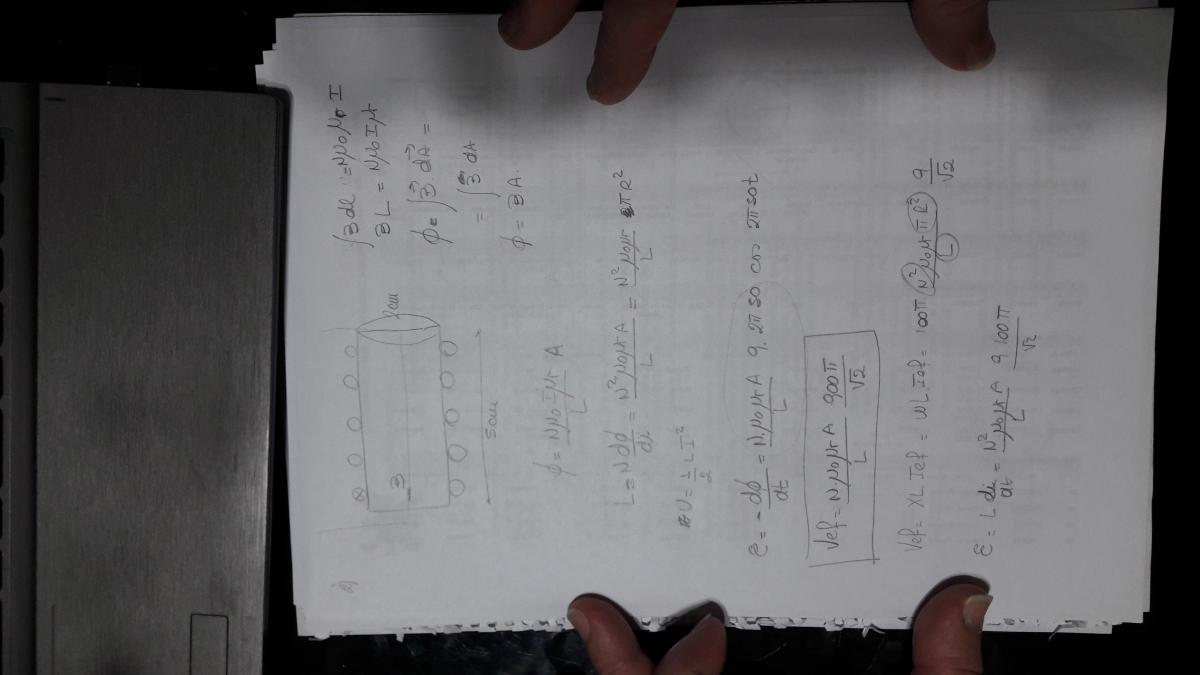 2)
∫ B dl = Nμ0 μr I
BL = Nμ0 I μr
ϕ = ∫ B⃗ · dA⃗ =
= ∫ B · dA
ϕ = BA.
2cm
B
5cm
ϕ = Nμ0 I μr A / L
L = N dϕ/di = N² μ0 μr A / L = N² μ0 μr πR² / L
U = 1/2 L I²
ε = - dϕ/dt = N. μ0 μr A / L 9. 2π 50 cos 2π 50t
Vef = N. μ0 μr A / L 900π / √2
Vef = XL Ief = ωL Ief = 100π N² μ0 μr πR² / L 9/√2
ε = L di/dt = N² μ0 μr A / L 9 100π / √2